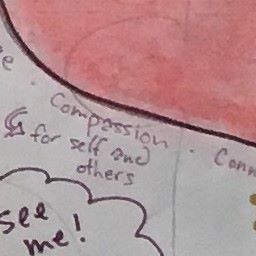 Compassion
for self and
others
see
me!